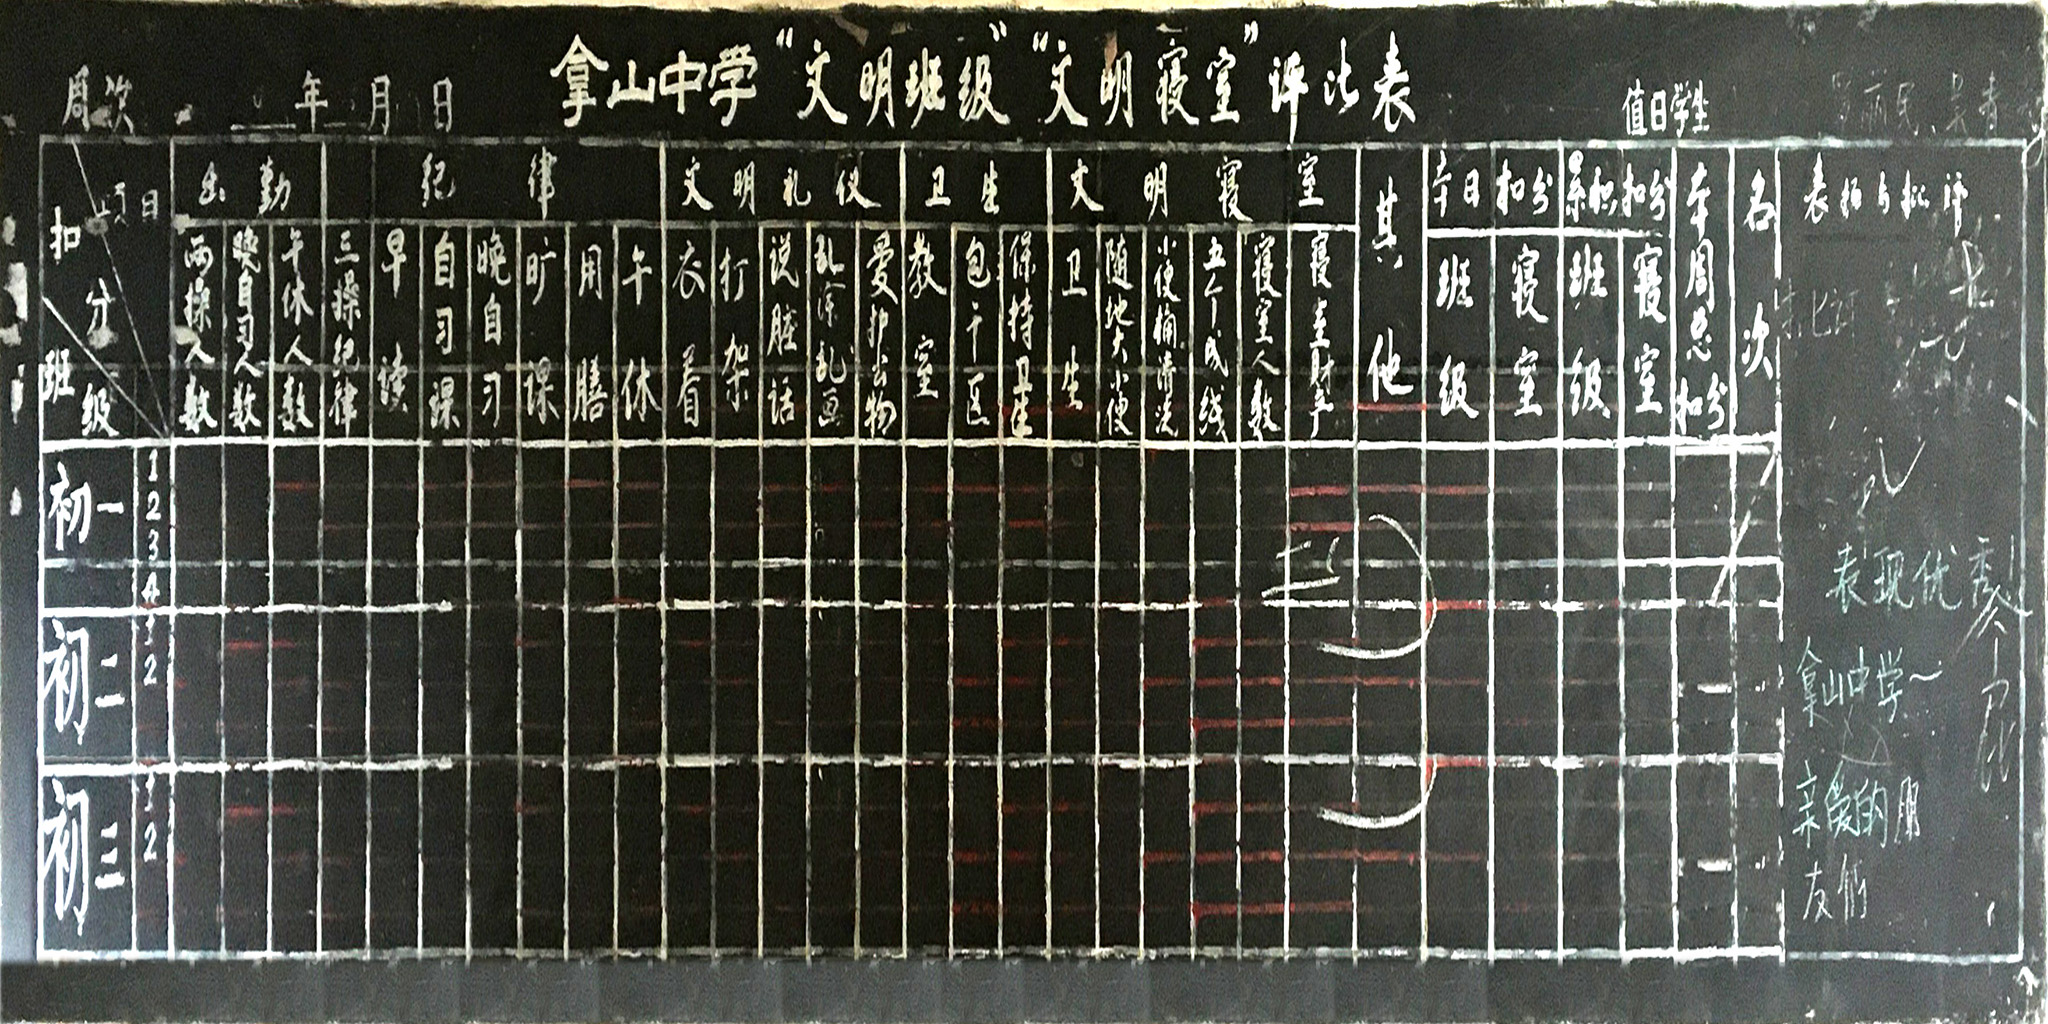 拿山中学“文明班级”“文明寝室”评比表
周次 年 月 日 值日学生
项目 扣分 班级
出勤 纪律 文明礼仪 卫生 文明寝室 其他 本日扣分 累积扣分 本周总扣分 名次 表扬与批评
两操人数 晚自习人数 午休人数 三操纪律 早读 自习课 晚自习 旷课 用膳 午休 衣着 打架 说脏话 乱涂乱画 爱护公物 教室 包干区 保持卫生 卫生 随地大小便 小便桶清洗 五个成线 寝室人数 寝室财产 班级 寝室 班级 寝室
初一 1 2 3 4
初二 1 2
初三 1 2
表现优秀
拿山中学~
亲爱的朋
友们